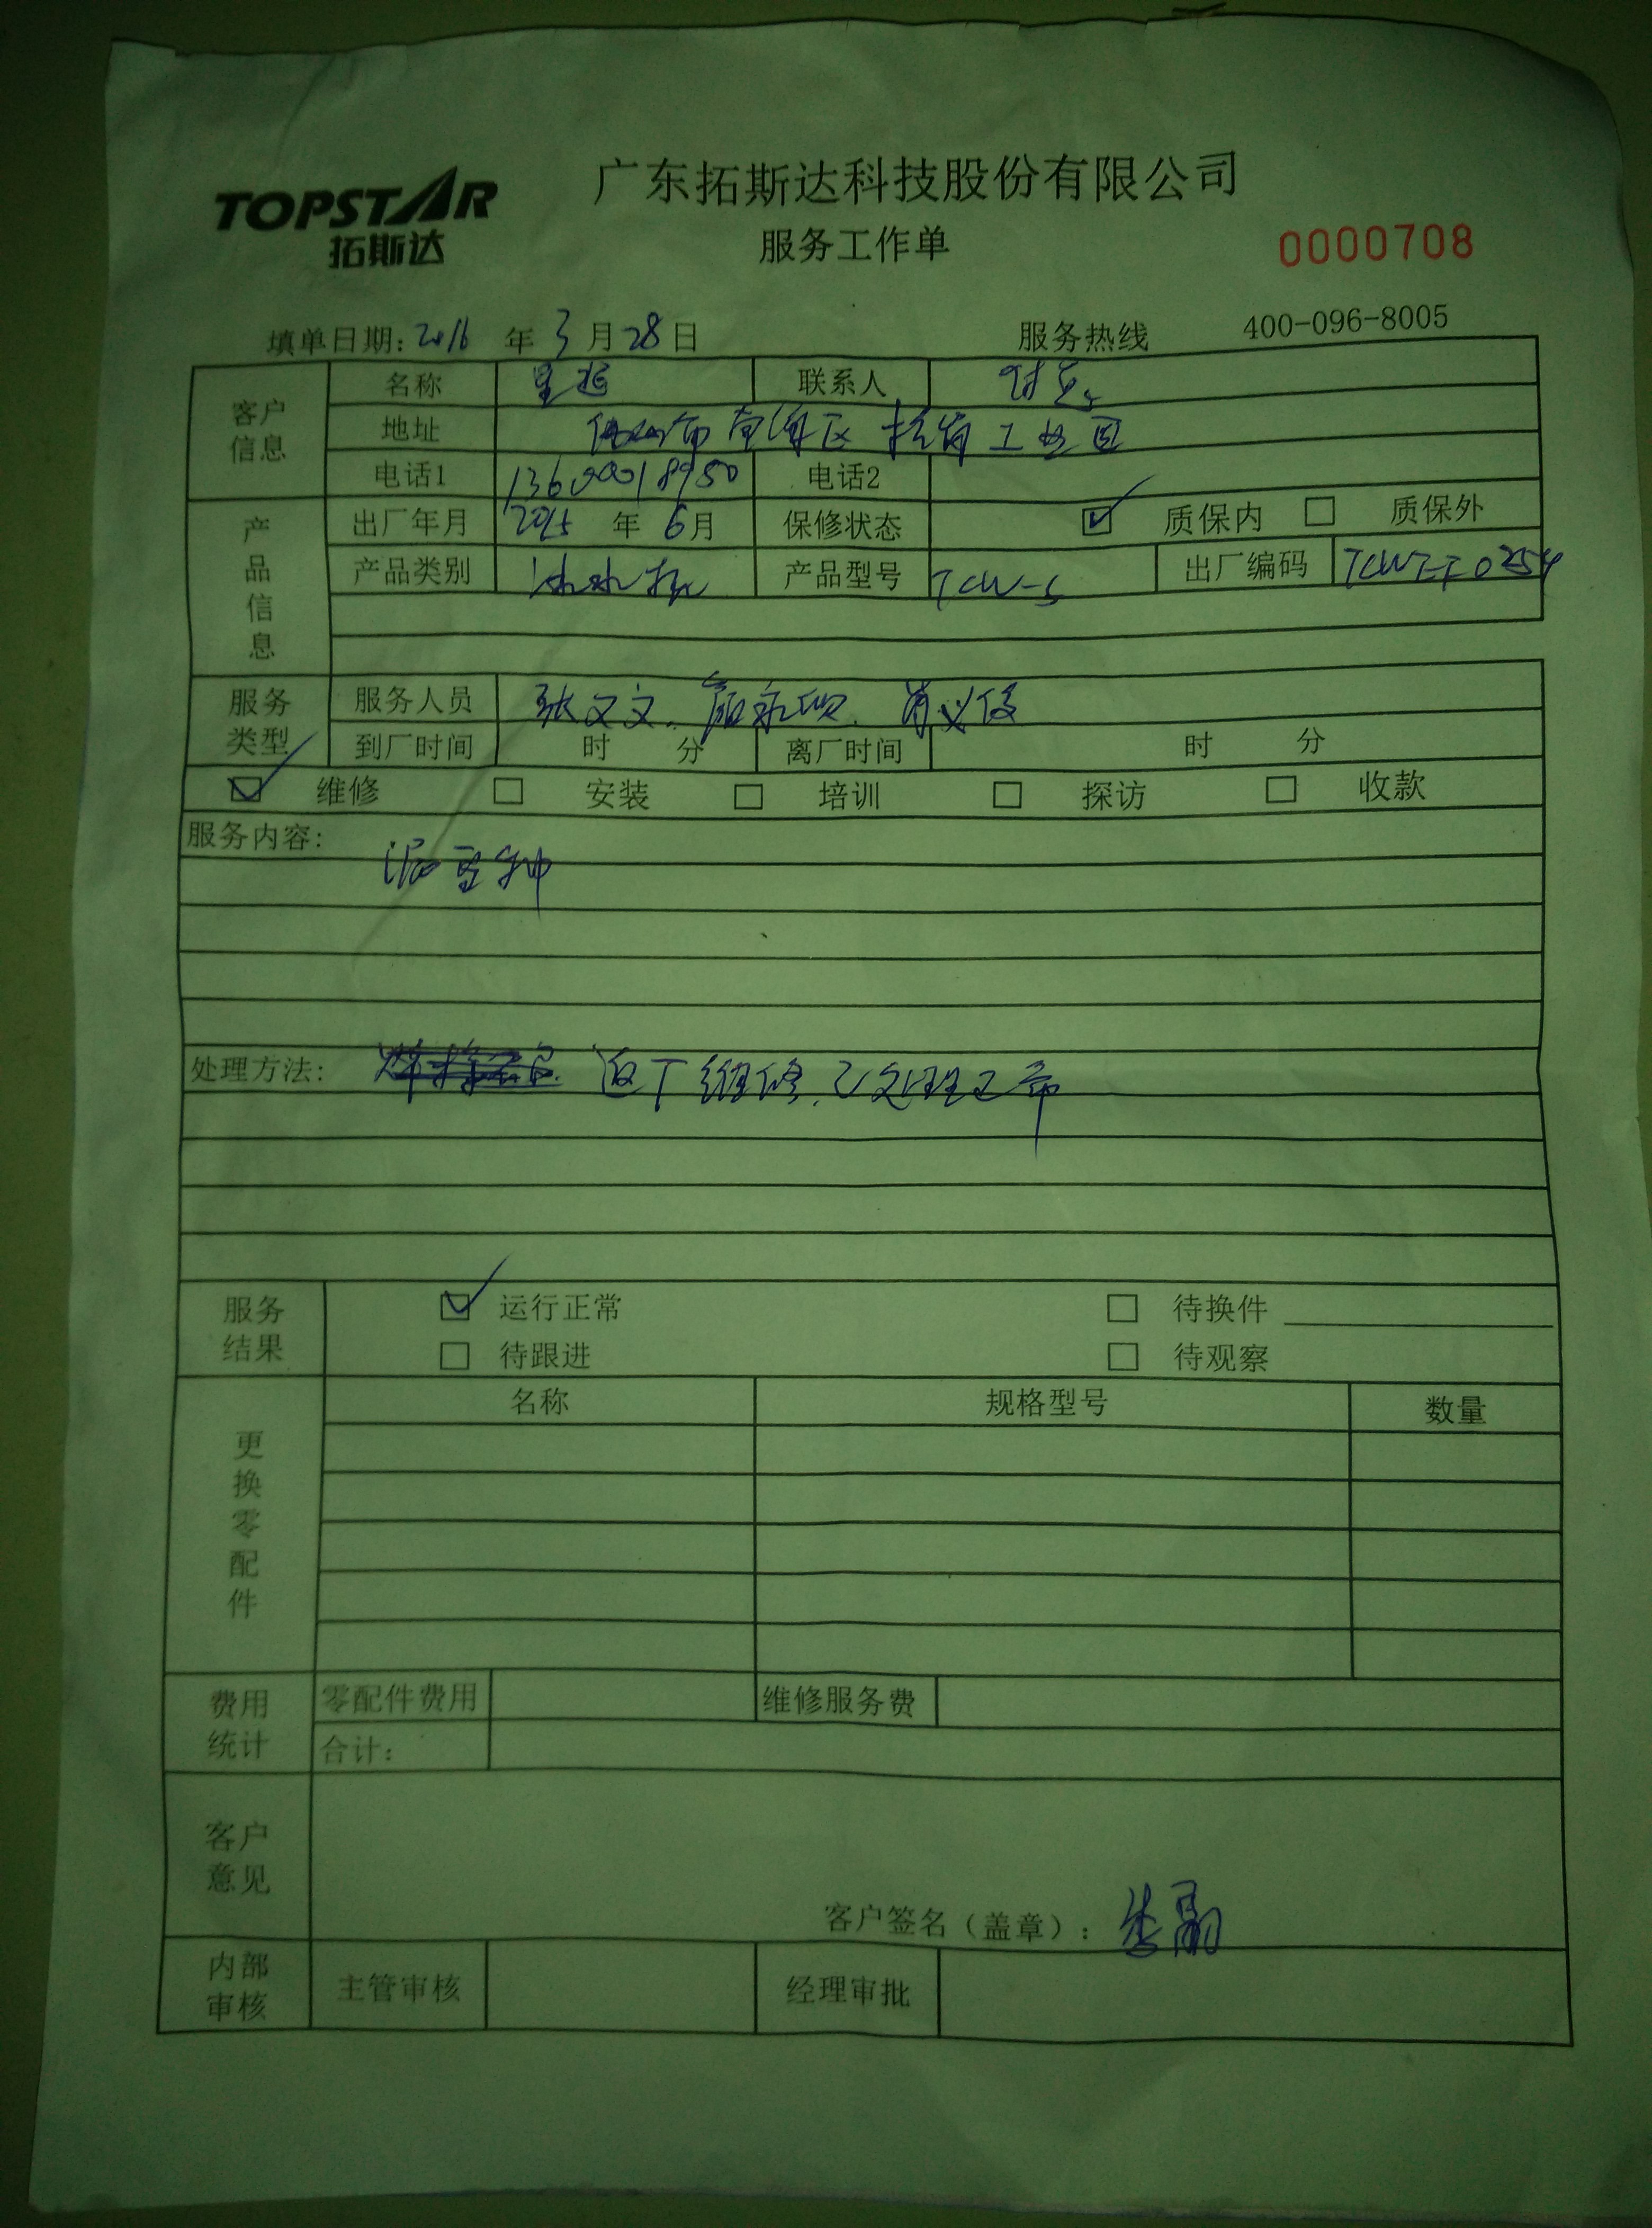 TOPSTAR
拓斯达
广东拓斯达科技股份有限公司
服务工作单
0000708
填单日期: 2016 年 3 月 28 日 服务热线 400-096-8005
客户信息
名称 联系人
地址 佛山市南海区 工业园
电话1 13600018950 电话2
产品信息
出厂年月 2015 年 6月 保修状态 ☑ 质保内 □ 质保外
产品类别 冰水机 产品型号 TCW-5 出厂编码
服务类型
服务人员 张文文、
到厂时间 时 分 离厂时间 时 分
☑ 维修 □ 安装 □ 培训 □ 探访 □ 收款
服务内容:
处理方法: 返厂维修,已处理正常
服务结果
☑ 运行正常 □ 待换件
□ 待跟进 □ 待观察
更换零配件
名称 规格型号 数量
费用统计
零配件费用 维修服务费
合计:
客户意见
客户签名(盖章):
内部审核
主管审核 经理审批